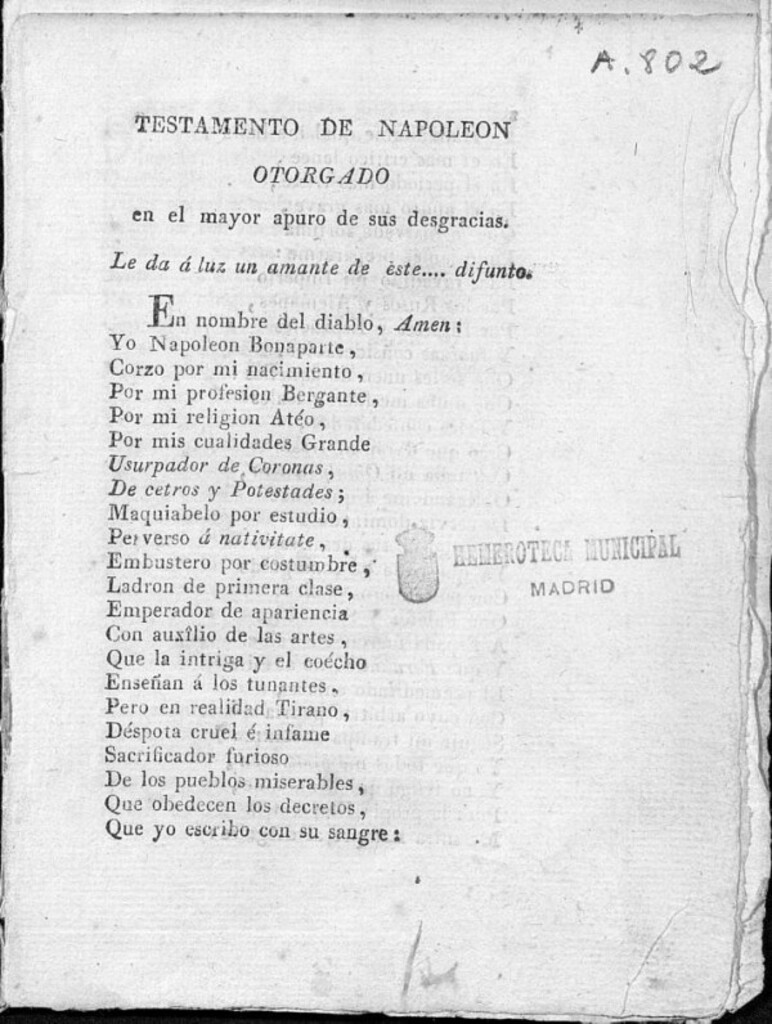 A. 802
TESTAMENTO DE NAPOLEON
OTORGADO
en el mayor apuro de sus desgracias.
Le da á luz un amante de este.... difunto.
En nombre del diablo, Amen:
Yo Napoleon Bonaparte,
Corzo por mi nacimiento,
Por mi profesion Bergante,
Por mi religion Atéo,
Por mis cualidades Grande
Usurpador de Coronas,
De cetros y Potestades;
Maquiabelo por estudio,
Perverso á nativitate,
Embustero por costumbre,
Ladron de primera clase,
Emperador de apariencia
Con auxîlio de las artes,
Que la intriga y el coécho
Enseñan á los tunantes,
Pero en realidad Tirano,
Déspota cruel é infame
Sacrificador furioso
De los pueblos miserables,
Que obedecen los decretos,
Que yo escribo con su sangre:
HEMEROTECA MUNICIPAL
MADRID